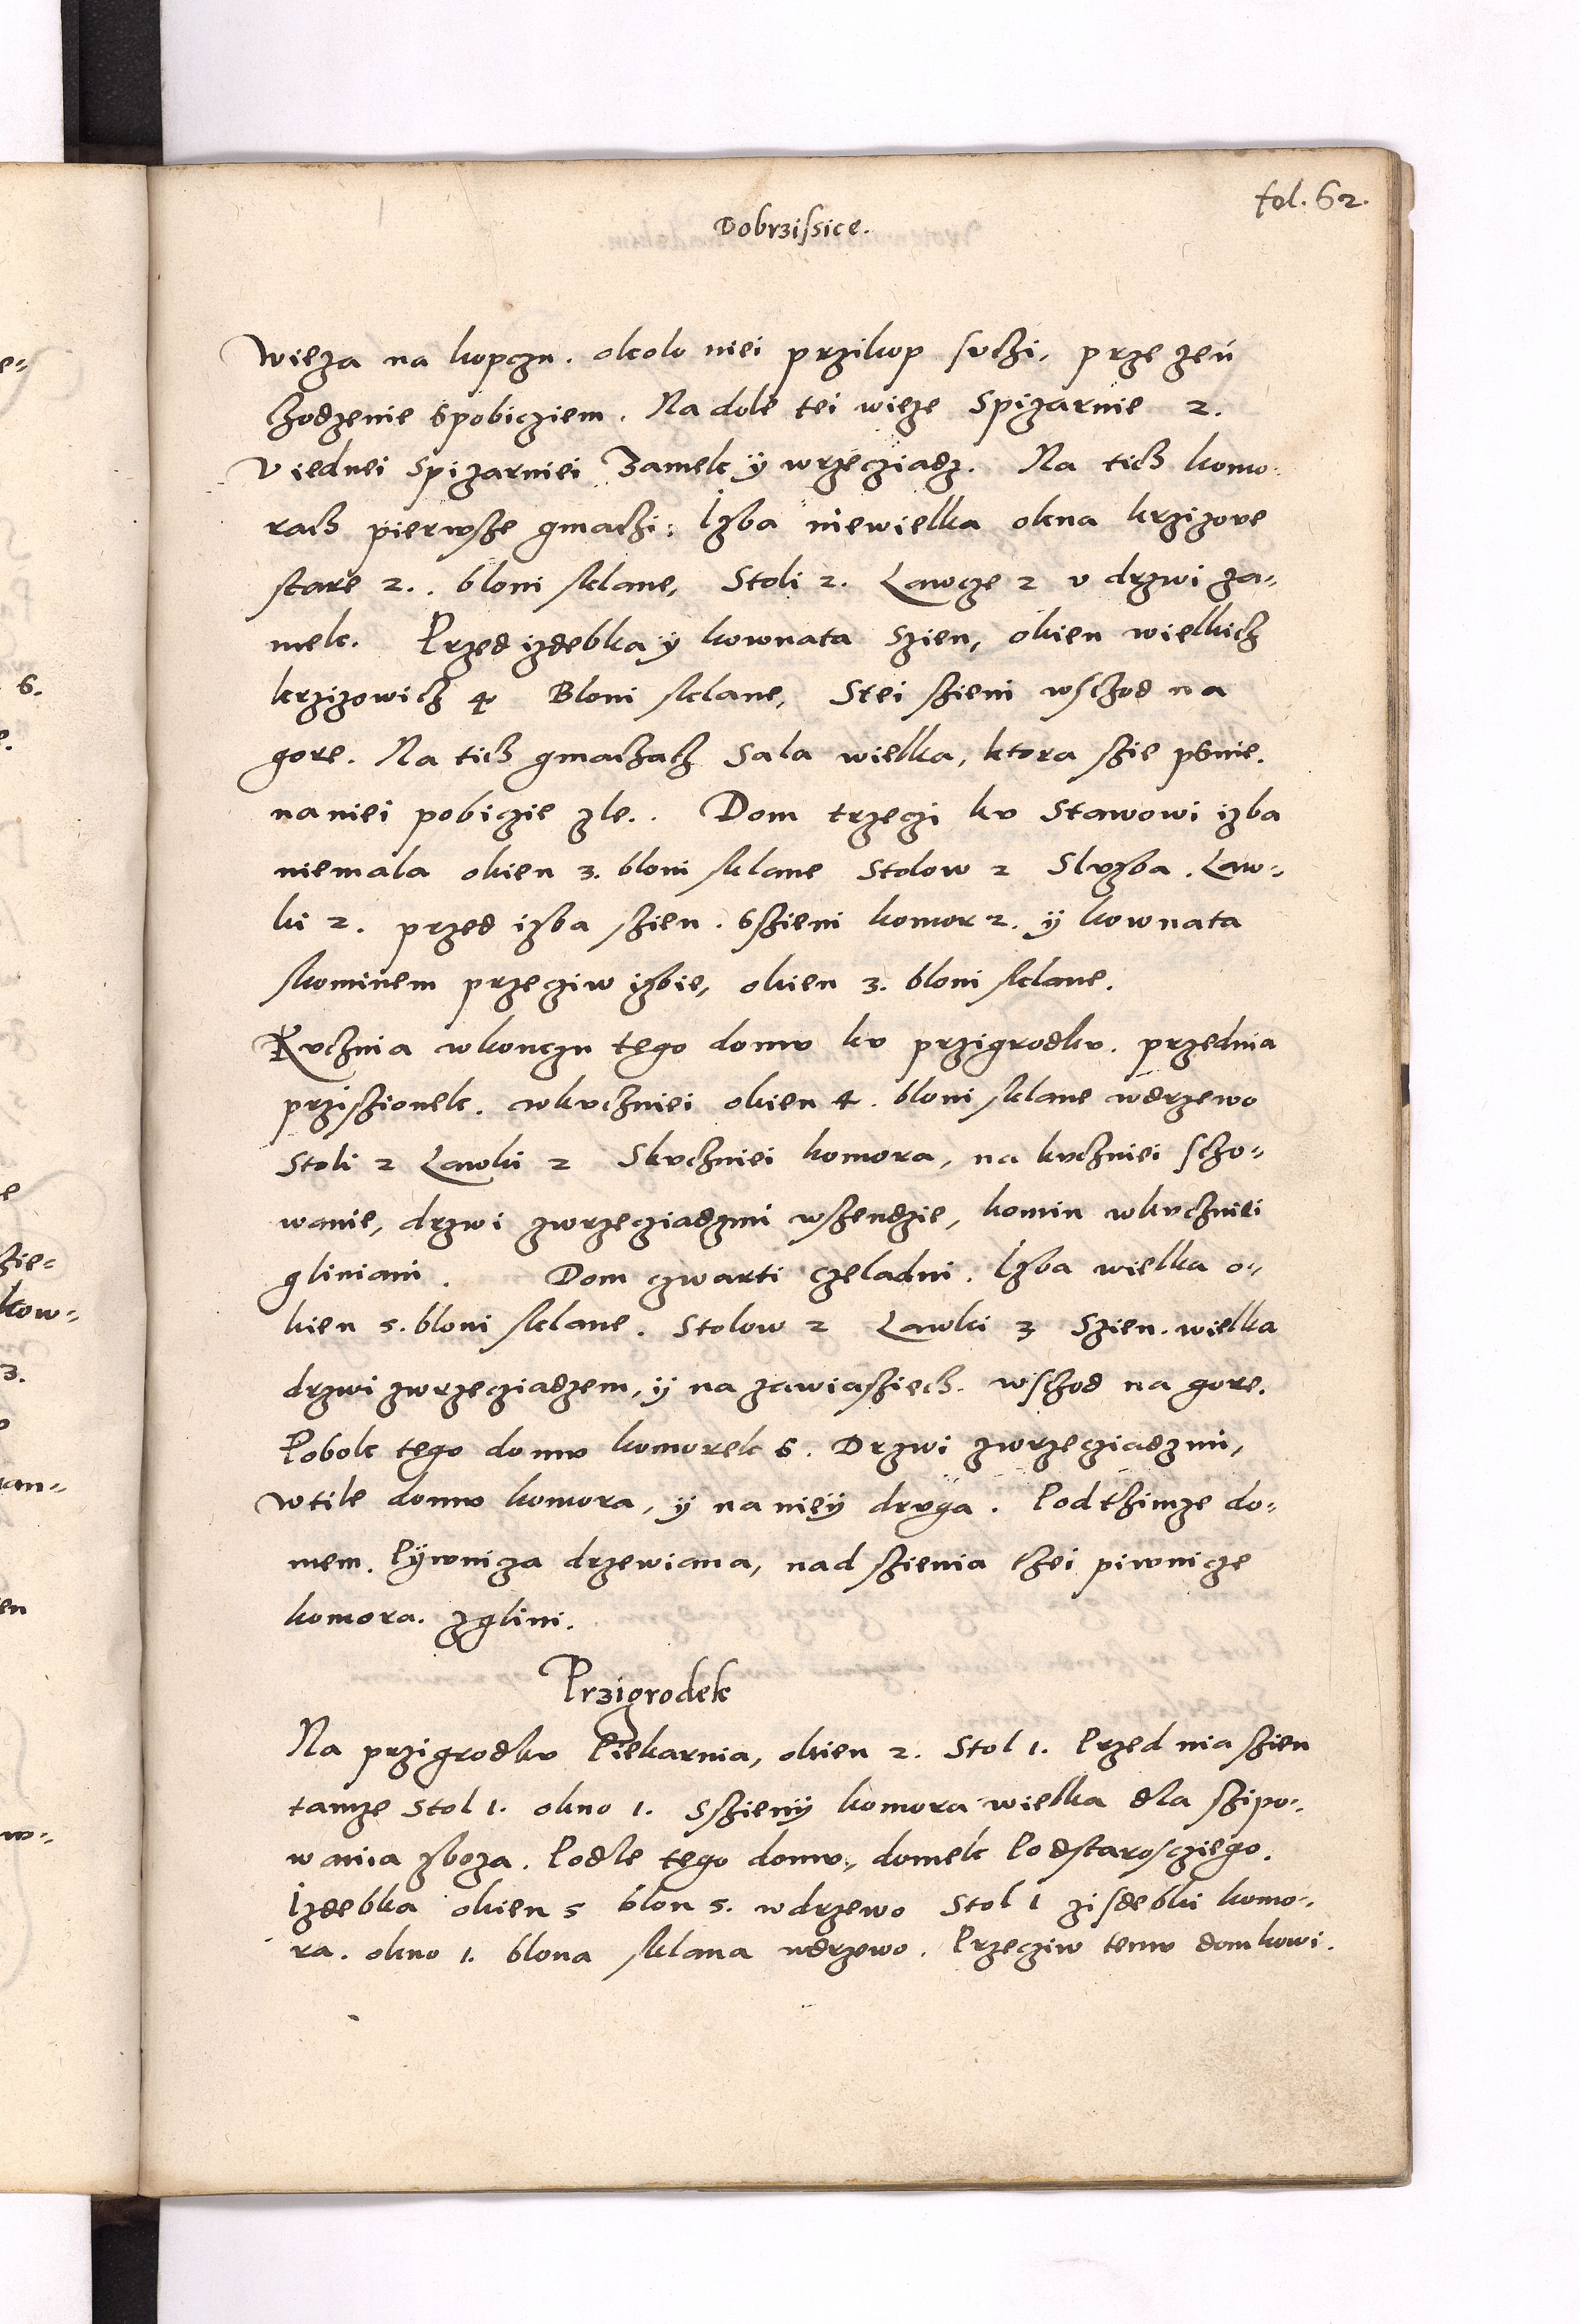 fol. 62.
Dobrzissice.
Wieza na kopczu. okolo niei przikop suchi, prze zeń
chodzenie spobicziem. Na dole tei wieze Spizarnie 2.
V iednei spizarniei Zamek ÿ wrzecziadz. Na tich komo-
rach pierwsze gmachi: Izba niewielka okna krzizove
stare 2. bloni sklane, Stoli 2. Lawcze 2 v drzwi za-
mek. Przed izdebka ÿ kownata Szien, okien wielkich
krzizowich 4 Bloni sklane, Stei sieni wschod na
gore. Na tich gmachach Sala wielka, ktora szie psuie.
na niei pobiczie zle. Dom trzeczi kv Stawowi izba
niemala okien 3. bloni sklane Stolow 2 Sluzba. Law-
ki 2. przed izba szien. Sszieni komor 2. ÿ kownata
skominem przeciw izbie, okien 3. bloni sklane.
Kvchnia wkonczu tego domv kv przigrodkv. przednia
przisionek. wkvchniei okien 4. bloni sklane wdrzewo
Stoli 2 Lawki 2 Skvchniei komora, na kvchniei scho-
wanie, drzwi zwrzecziadzmi wszendzie, komin wkvchniei
gliniani. Dom czwarti czeladni. Izba wielka o-
kien 5. bloni sklane. Stolow 2 Lawki 3 Szien wielka
drzwi zwrzecziadzem, ÿ na zawiasziech. wschod na gore.
Pobok tego domv komorek 6. Drzwi zwrzecziadzmi,
wtile domv komora, ÿ na nieÿ drvga. Pod thimze do-
mem. Pÿwnicza drzewiana, nad szienia thei piwnicze
komora. zglini.
Przigrodek
Na przigrodkv Piekarnia, okien 2. Stol 1. Przed nia szien
tamze Stol 1. okno 1. Sszienÿ komora wielka dla szipo-
wania zboza. Podle tego domv, domek Podstarosciego.
Izdebka okien 5 blon 5. wdrzewo Stol 1 zisdebki komo-
ra. okno 1. blona sklana wdrzewo. Przecziw temv domkowi.